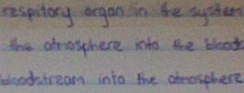 respitory organ in the system
the atmosphere into the blood
bloodstream into the atmosphere